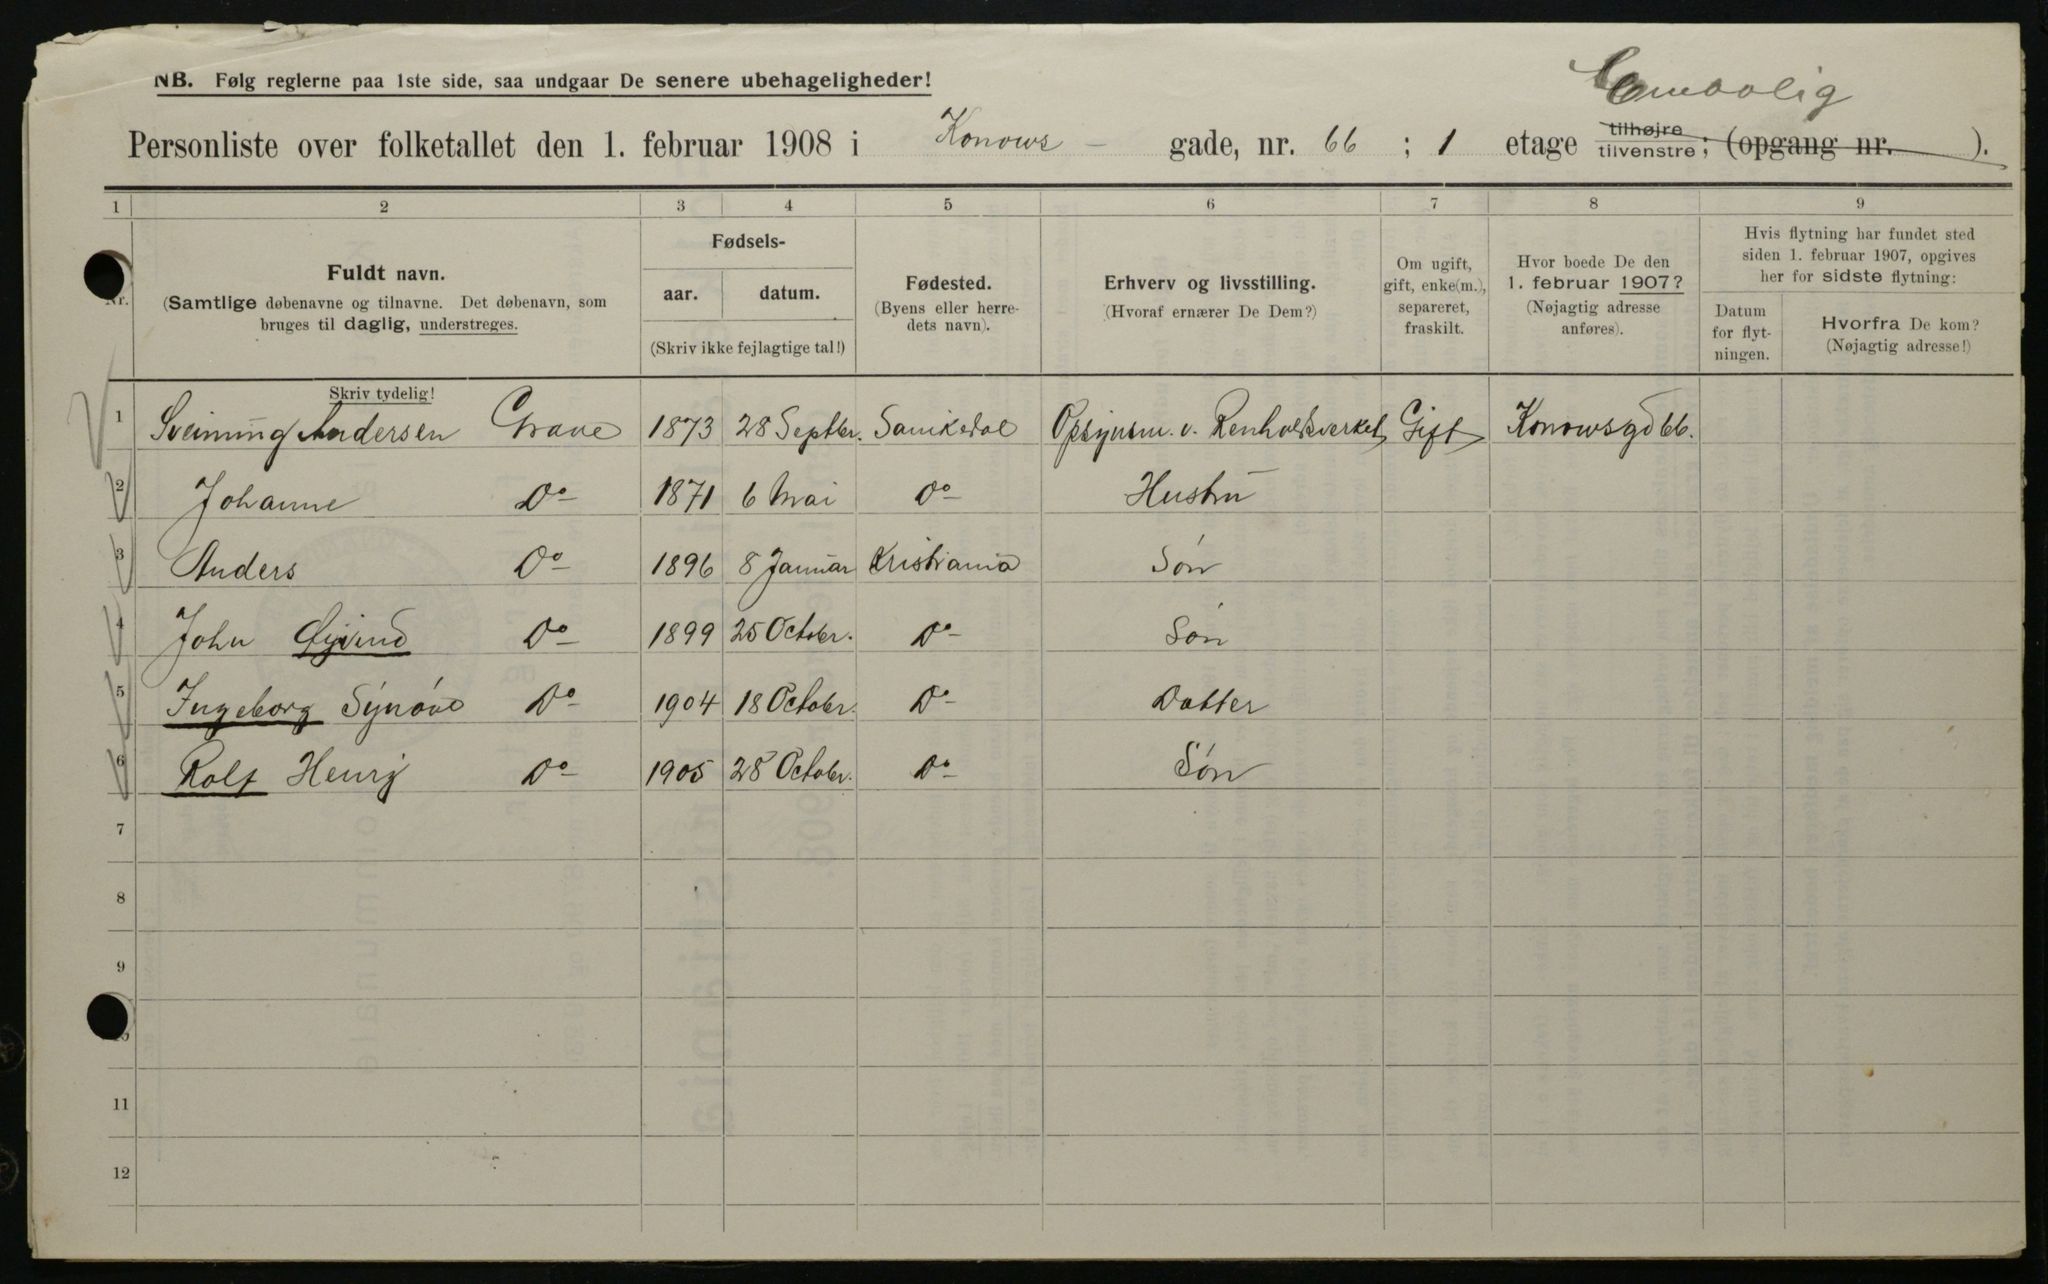 NB. Følg reglerne paa 1ste side, saa undgaar De senere ubehageligheder!
Personliste over folketallet den 1. februar 1908 i Konows – gade, nr. 66 ; 1 etage tilhøjre tilvenstre; (opgang nr. ).
1 2 3 4 5 6 7 8 9
Nr.
Fuldt navn.
(Samtlige døbenavne og tilnavne. Det døbenavn, som
bruges til daglig, understreges.
Skriv tydelig!
Fødsels-
aar. datum.
(Skriv ikke fejlagtige tal!)
Fødested.
(Byens eller herre-
dets navn).
Erhverv og livsstilling.
(Hvoraf ernærer De Dem?)
Om ugift,
gift, enke(m.),
separeret,
fraskilt.
Hvor boede De den
1. februar 1907?
(Nøjagtig adresse
anføres).
Hvis flytning har fundet sted
siden 1. februar 1907, opgives
her for sidste flytning:
Datum
for flyt-
ningen.
Hvorfra De kom?
(Nøjagtig adresse!)
1 Sveinung Andersen Grave 1873 28 Septbr. Sanikedal Opsynsm. v. Renholdsverket Gift Konowsgd 66.
2 Johanne Do 1871 6 Mai Do Hustru
3 Anders Do 1896 8 Januar Kristiania Søn
4 John Øyvind Do 1899 25 Octobr. Do Søn
5 Ingeborg Synøve Do 1904 18 Octobr. Do Datter
6 Rolf Henrij Do 1905 28 Octobr. Do Søn
7
8
9
11
12